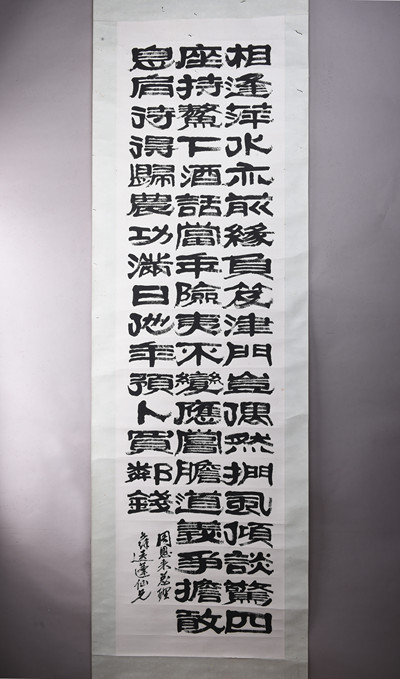 相逢萍水亦前緣負笈津門豈偶然捫虱傾談驚四
座持螯下酒話當年險夷不變應嘗膽道義爭擔敢
息肩待得歸農功滿日他年預卜買鄰錢
周恩来總理
詩送蓬仙兄